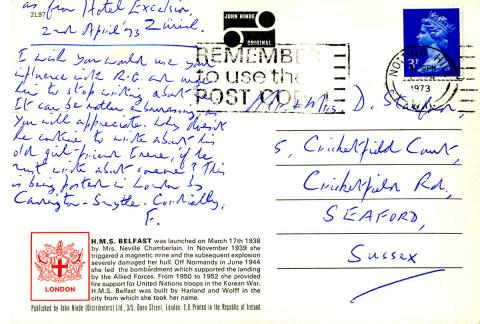 as from Hotel Excelsior,
2L97
2nd April '73 Zürich.
I wish you would use your
influence with R.G. and urge
him to stop writing about me.
It can be rather embarrassing, as
you will appreciate. Why doesn't
he continue to write about his
old girl-friend Irene, if he
must write about someone? This
is being posted in London by
Carrington-Smythe. Cordially,
F.
JOHN HINDE
ORIGINAL
REMEMBER
to use the
POST CODE
NOTTING HILL
PM
1973
3P
Mr & Mrs D.
5, Cricketfield Court,
Cricketfield Rd,
SEAFORD,
Sussex
LONDON
H.M.S. BELFAST was launched on March 17th 1938
by Mrs. Neville Chamberlain. In November 1939 she
triggered a magnetic mine and the subsequent explosion
severely damaged her hull. Off Normandy in June 1944
she led the bombardment which supported the landing
by the Allied Forces. From 1950 to 1952 she provided
fire support for United Nations troops in the Korean War.
H.M.S. Belfast was built by Harland and Wolff in the
city from which she took her name.
Published by John Hinde (Distributors) Ltd., 3/5, Dunn Street, London. E.8. Printed in the Republic of Ireland.